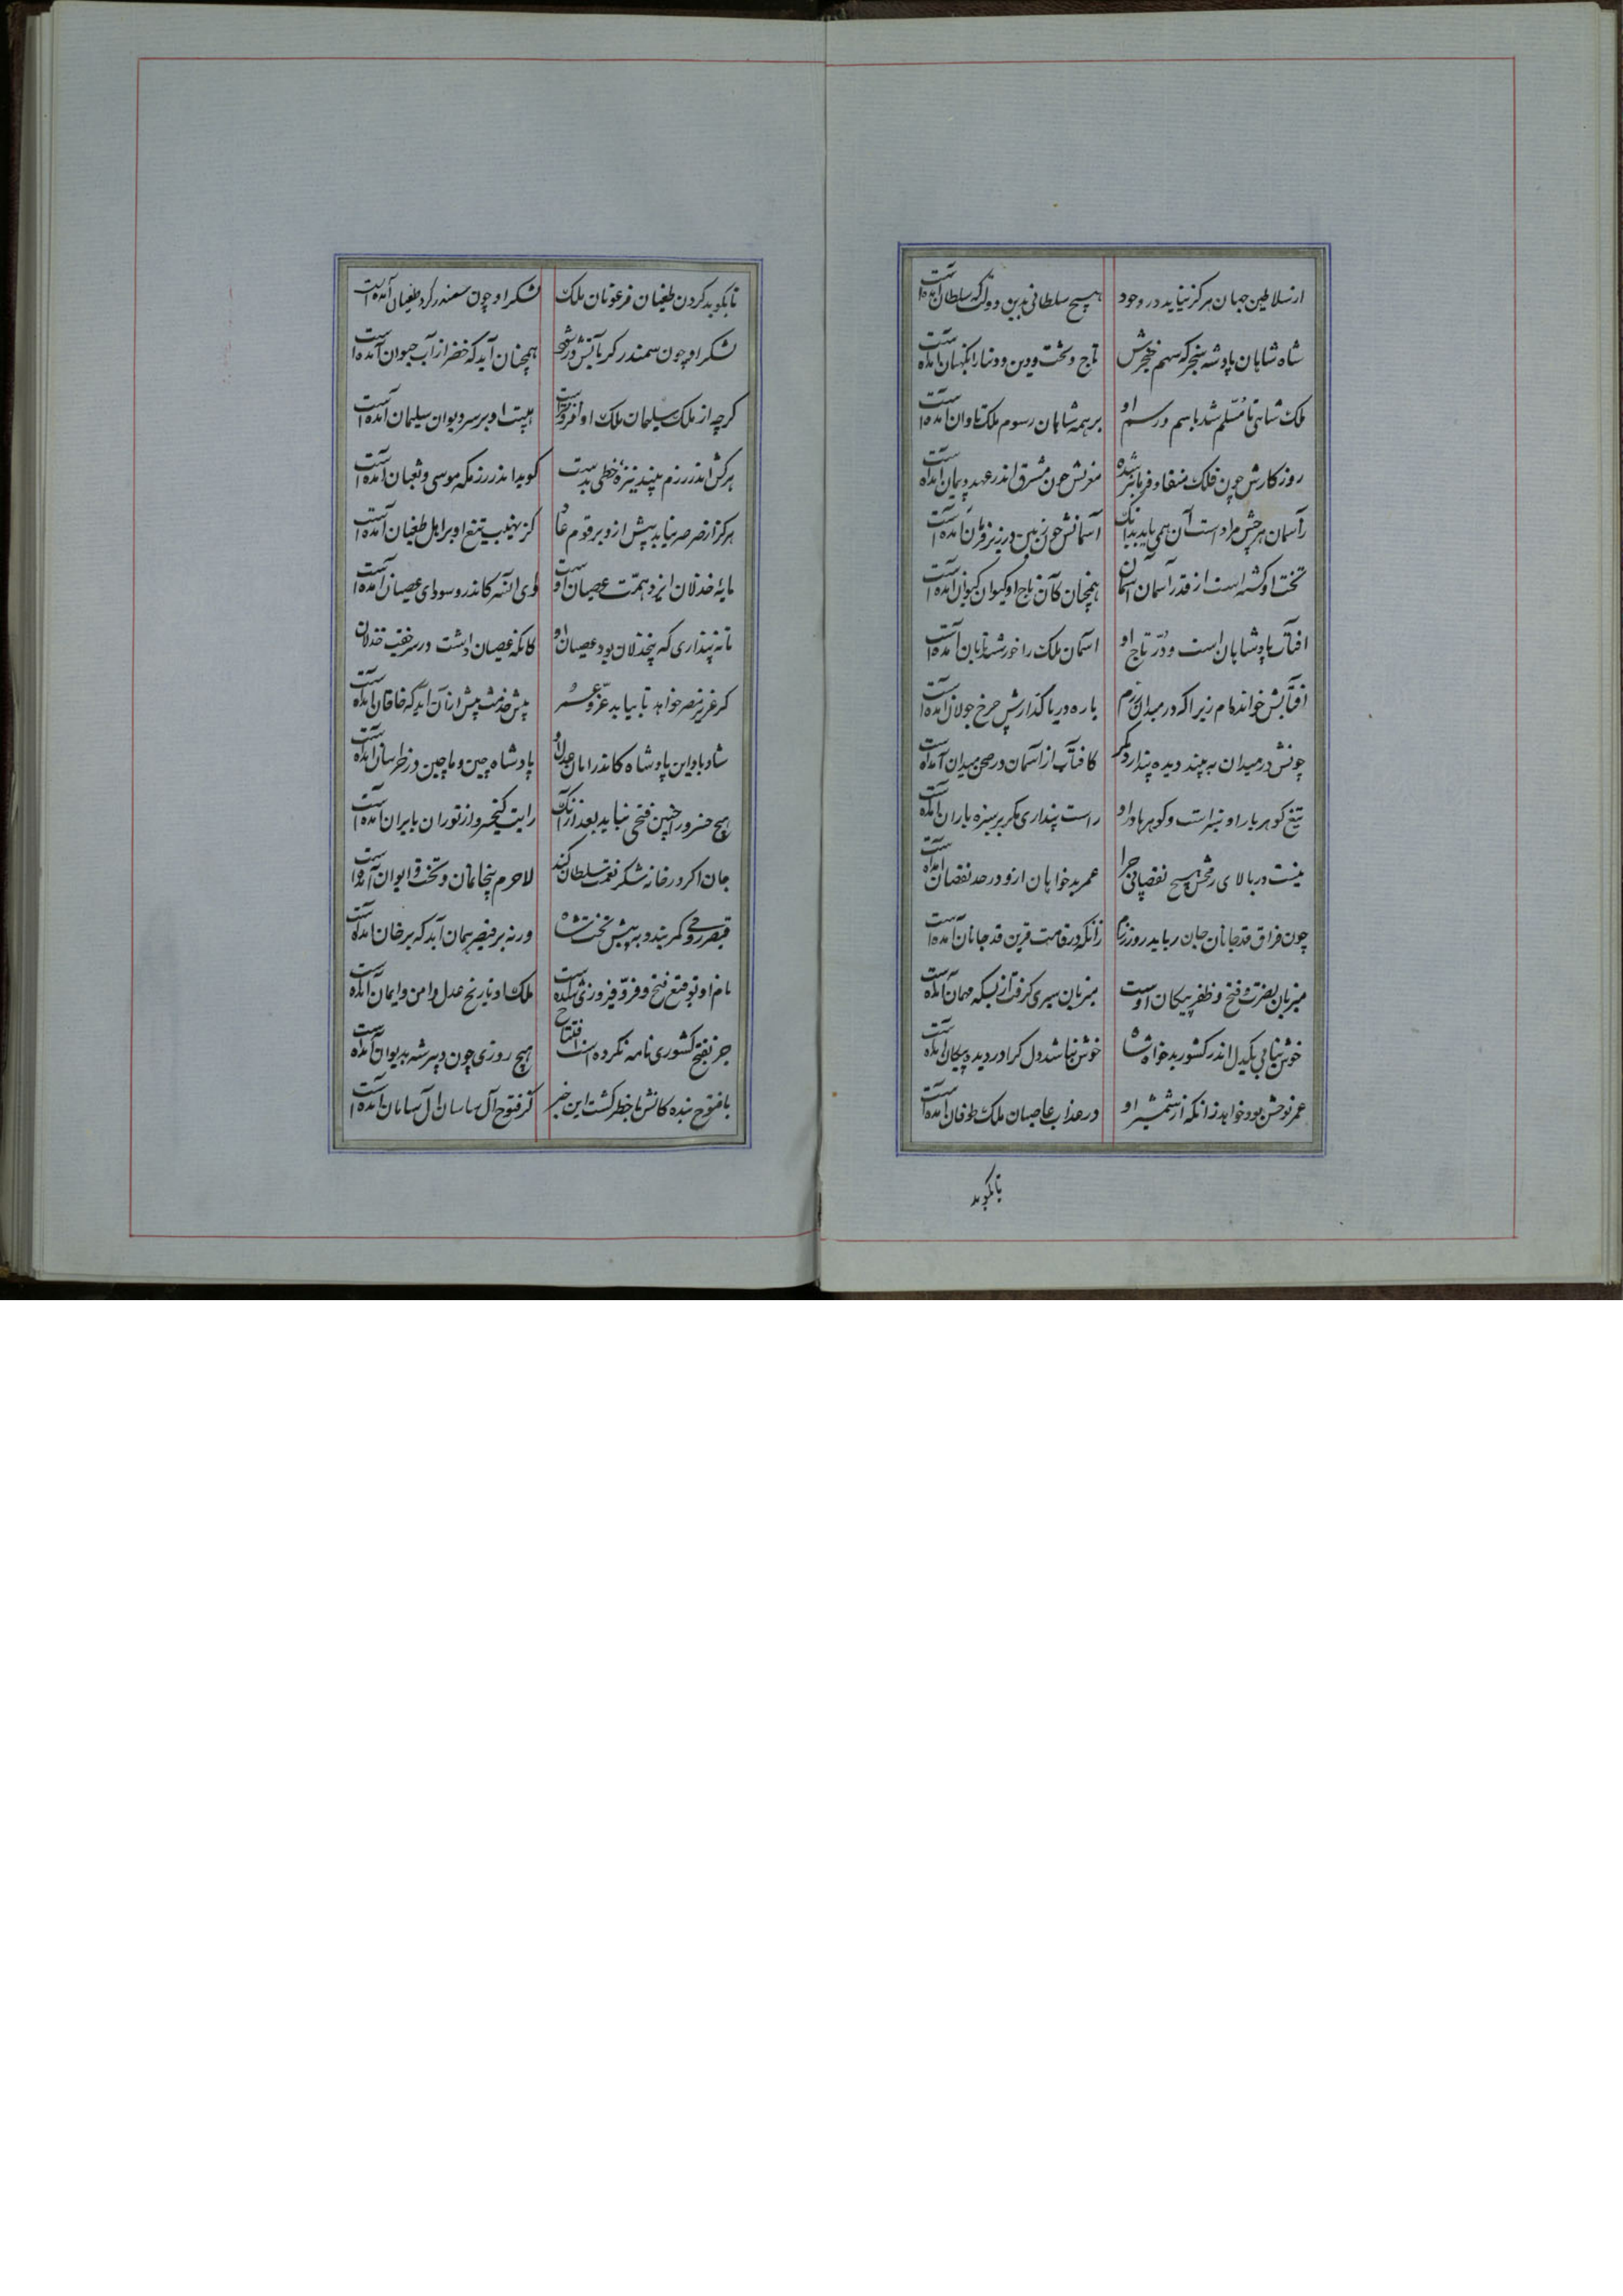 از سلاطین جهان هرگز نیاید در وجود هیچ سلطانی بدین دولت که سلطان آمده است
شاه شاهان پادشه سنجر که سهم خنجرش تاج و تخت و دین و دنیا را نگهبان آمده است
ملک شاهی تا مسلم شد باسم و رسم او بر همه شاهان رسوم ملک تاوان آمده است
روزگارش چون فلک منقاد و فرمانبر شده مغربش چون مشرق اندر عهد و پیمان آمده است
زآسمان هرچش مراد است آن همی یابد بدانک آسمانش چون زمین در زیر فرمان آمده است
تخت او گشته است از قدر آسمان آسمان همچنان کآن تاج او کیوان کیوان آمده است
افتاب پادشاهان است و در تاج او اسمان ملک را خورشید تابان آمده است
افتابش خوانده‌ام زیرا که در میدان رزم باره دریا گذارش چرخ جولان آمده است
چونش در میدان به بیند دیده پندارد مگر کافتاب از آسمان در صحن میدان آمده است
تیغ گوهربار او سبز است و گوهرها در او راست پنداری مگر بر سبزه باران آمده است
نیست در بالای رمحش هیچ نقصانی چرا عمر بدخواهان ازو در حد نقصان آمده است
چون فراق قد جانان جان رباید روز رزم زانکه در قامت قرین قد جانان آمده است
میزبان نصرت و فتح و ظفر پیکان اوست میزبان سیری گرفت از بسکه مهمان آمده است
خوش نیابی یکدل اندر کشور بدخواه شاه خوش نباشد دل کرا در دیده پیکان آمده است
عمر نوحش بود خواهد زانکه از شمشیر او در عذاب عاصیان ملک طوفان آمده است
تا بکوبد
تا بکوبد گردن طغیان فرعونان ملک لشکر او چون سمندر گرد طغیان آمده است
لشکر او چون سمندر گر بآتش در شود همچنان آید که خضر از آب حیوان آمده است
گرچه از ملک سلیمان ملک او افزونتر است هیبت او بر سر دیوان سلیمان آمده است
هرکش اندر رزم بیند نیزه خطی بدست گوید اندر رزمگه موسی و ثعبان آمده است
هرگز از صرصر نیاید پیش ازو بر قوم عاد کز نهیب تیغ او بر اهل طغیان آمده است
مایه خذلان ایزد همت عصیان اوست وای آنسر کاندرو سودای عصیان آمده است
تا نپنداری که بیخذلان بود عصیان او کانکه عصیان داشت در سر جفت خذلان
گر عزیز مصر خواهد تا بیابد عز و پیش خدمت پیش از آن آید که خاقان آمده است
شاد باد این پادشاه کاندر امان عدل او پادشاه چین و ماچین در خراسان آمده است
هیچ خسرو را چنین فتحی نیاید بعد از آنک رایت کیخسرو از توران بایران آمده است
خان اگر در خانه شکر نعمت سلطان کند لاجرم با خانمان و تخت و ایوان آمده است
قیصر رومی کمر بندد به پیش تخت شاه ورنه بر قیصر همان آید که بر خان آمده است
نام او توقیع فتح و فر و فیروزی شده است ملک او تاریخ عدل و امن و ایمان آمده است
جز بفتح کشوری نامه نکرده است افتتاح هیچ روزی چون دبیر شه بدیوان آمده است
با فتوح بنده کانش با خطر گشت این خبر کز فتوح آل ساسان آل سامان آمده است